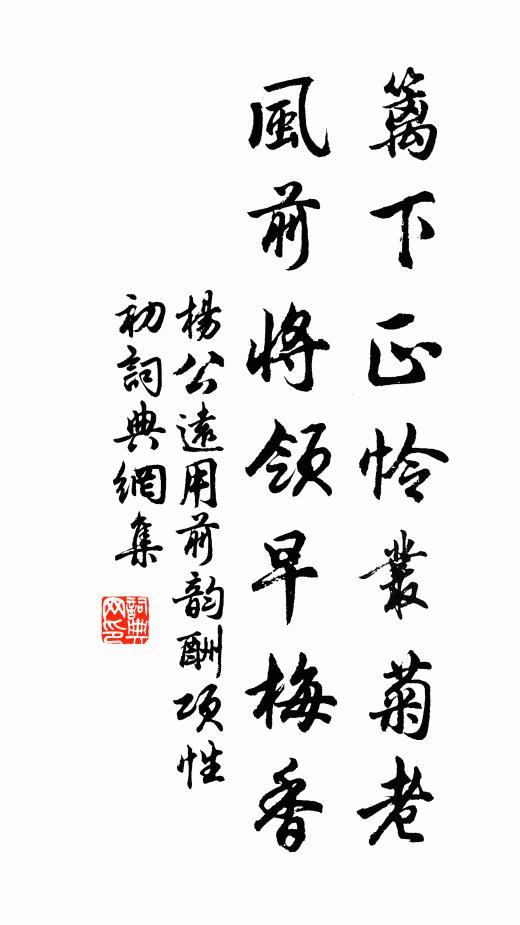 籬下正怜叢菊老
風前將領早梅香
楊公遠用前韵酬項性
初詞典網集
詞典网印